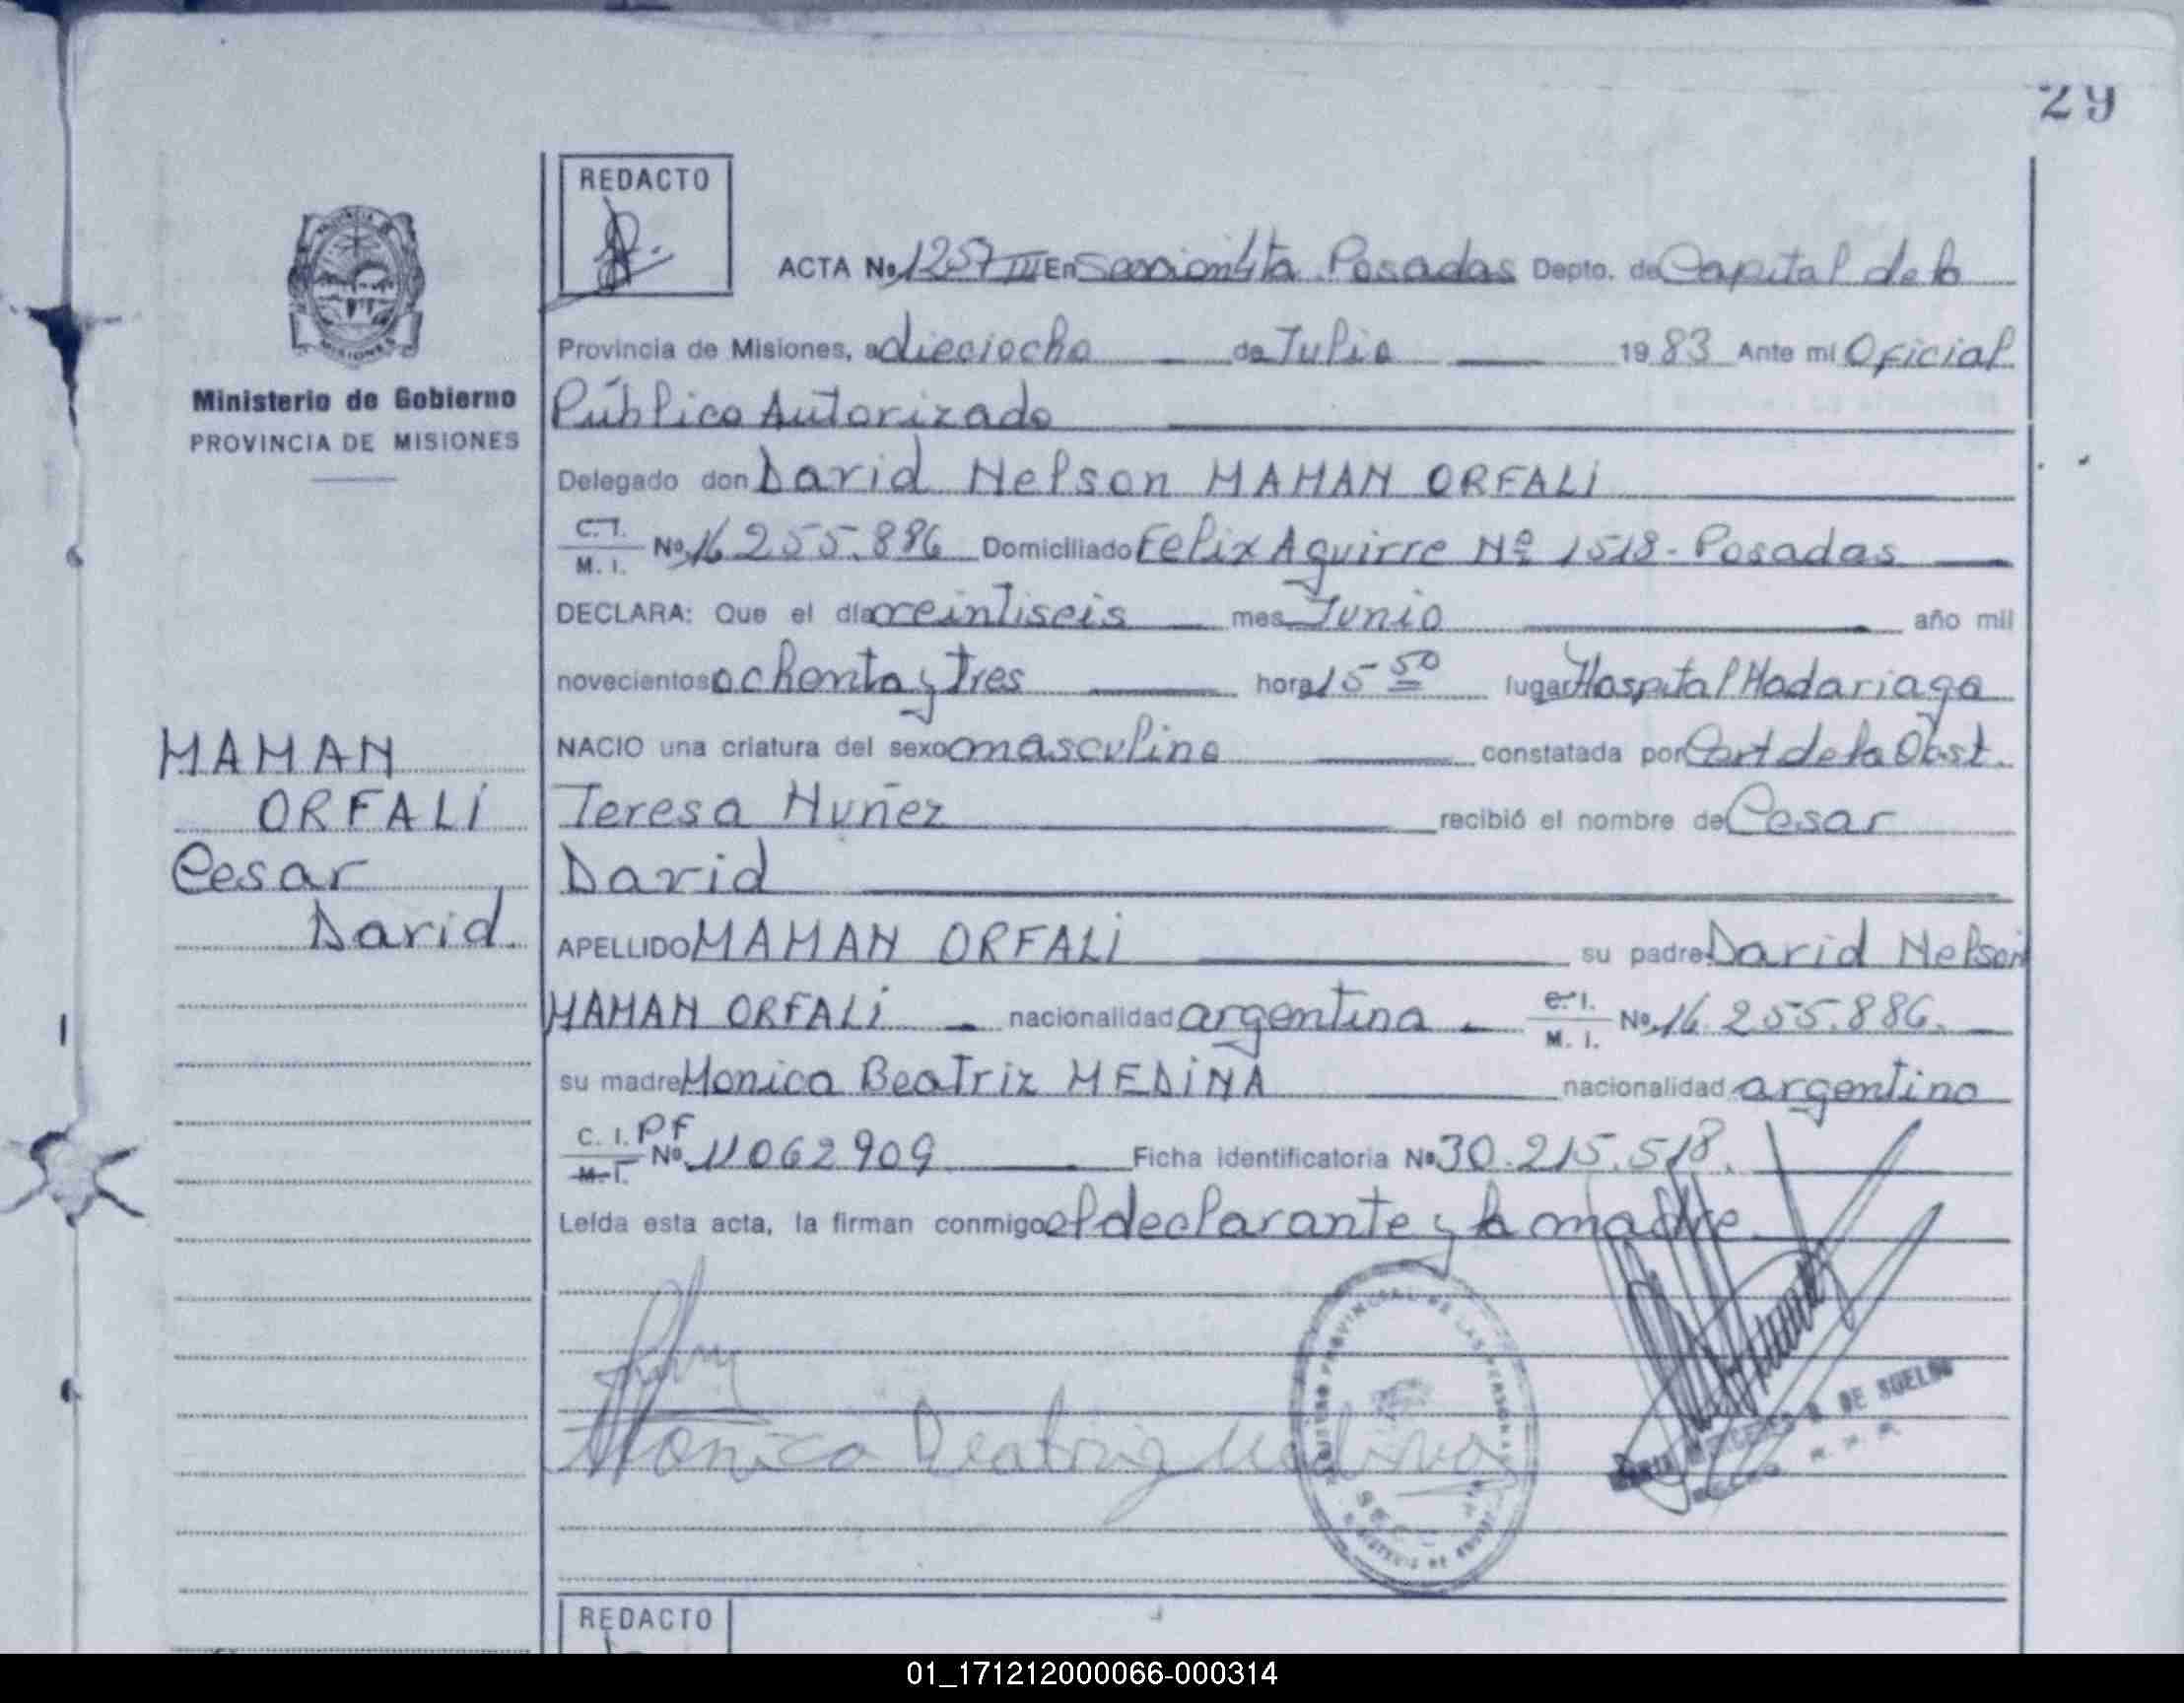 29
REDACTO
ACTA No. 1257 III En Posadas Depto. de Capital de la
Provincia de Misiones, a dieciocho de Julio 1983 Ante mi Oficial
Ministerio de Gobierno
Público Autorizado
PROVINCIA DE MISIONES
Delegado don David Nelson MAMAN ORFALI
C.I. M. I. No. 16 255.886 Domiciliado Felix Aguirre Nº 1518 - Posadas
DECLARA: Que el día veintiseis mes Junio año mil
novecientos ochenta y tres hora 15 50 lugar Hospital Madariaga
MAMAN
NACIO una criatura del sexo masculino constatada por Cert de la Obst.
ORFALI
Teresa Nuñez recibió el nombre de Cesar
Cesar
David
David.
APELLIDO MAMAN ORFALI su padre David Nelson
MAMAN ORFALI nacionalidad argentina C. I. M. I. No. 16.255.886.
su madre Monica Beatriz MEDINA nacionalidad argentina
C. I. PF M. I. No. 11062909 Ficha identificatoria No 30.215.518.
Leída esta acta, la firman conmigo el declarante y la madre
Monica Beatriz Medina
DE SUELDO
REDACTO
01_171212000066-000314